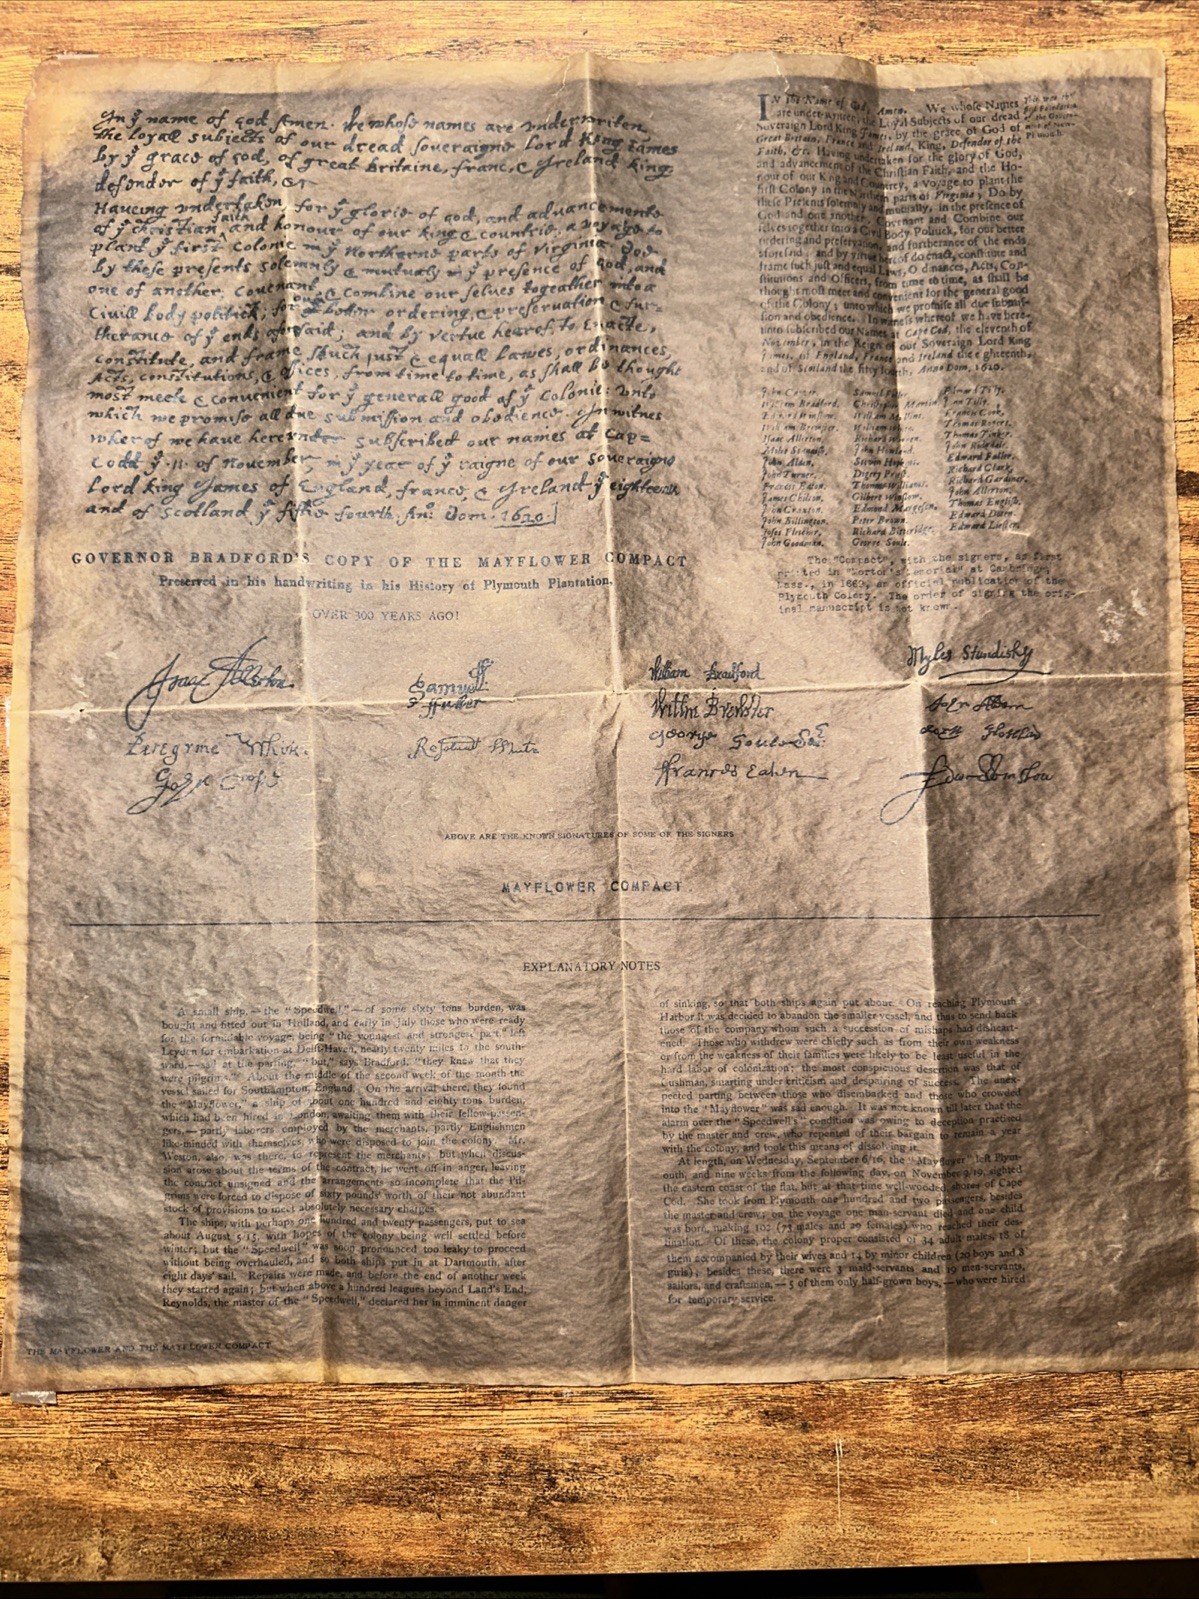 In yͤ name of god Amen. We whose names are underwriten,
the loyall subjects of our dread soveraigne Lord King James
by yͤ grace of god, of great Britaine, franc, & Ireland king,
defender of yͤ faith, &c
Haveing undertaken, for yͤ glorie of god, and advancemente
of yͤ christian faith and honour of our king & countrie, a voyage to
plant yͤ first colonie in yͤ Northerne parts of Virginia. Doe
by these presents solemnly & mutualy in yͤ presence of God, and
one of another, covenant, & combine our selves togeather into a
Civill body politick; for our better ordering, & preservation & fur-
therance of yͤ ends aforesaid; and by vertue hearof, to Enacte,
constitute, and frame shuch just & equall lawes, ordinances,
Acts, constitutions, & offices, from time to time, as shall be thought
most meete & convenient for yͤ generall good of yͤ Colonie: Unto
which we promise all due submission and obedience. In witnes
wherof we have hereunder subscribed our names at Cap=
Codd yͤ .11. of November, in yͤ year of yͤ raigne of our soveraigne
Lord king James of England, france, & Ireland yͤ eighteenth
and of Scotland yͤ fiftie fourth. Anͦ: Dom. 1620.
GOVERNOR BRADFORD'S COPY OF THE MAYFLOWER COMPACT
Preserved in his handwriting in his History of Plymouth Plantation.
OVER 300 YEARS AGO!
IN The Name of God, Amen. We whose Names
are under-written, the Loyal Subjects of our dread
Sovereign Lord King James, by the grace of God of
Great Britain, France and Ireland, King, Defender of the
Faith, &c. Having undertaken for the glory of God,
and advancement of the Christian Faith, and the Ho-
nour of our King and Countrey, a Voyage to plant the
first Colony in the Northern parts of Virginia; Do by
these Presents solemnly and mutually, in the presence of
God and one another, Covenant and Combine our
selves together into a Civil Body Politick, for our better
ordering and preservation, and furtherance of the ends
aforesaid: and by virtue hereof do enact, constitute and
frame such just and equal Laws, Ordinances, Acts, Con-
stitutions and Officers, from time to time, as shall be
thought most meet and convenient for the general good
of the Colony; unto which we promise all due submis-
sion and obedience. In witness whereof we have here-
unto subscribed our Names at Cape Cod, the eleventh of
November, in the Reign of our Sovereign Lord King
James, of England, France and Ireland the eighteenth,
and of Scotland the fifty fourth, Anno Dom. 1620.
John Carver, Samuel Fuller, Edward Tilly,
William Bradford, Christopher Martin, John Tilly,
Edward Winslow, William Mullins, Francis Cook,
William Brewster, William White, Thomas Rogers,
Isaac Allerton, Richard Warren, Thomas Tinker,
Miles Standish, John Howland, John Ridgdale,
John Alden, Steven Hopkins, Edward Fuller,
John Turner, Digery Priest, Richard Clark,
Francis Eaton, Thomas Williams, Richard Gardiner,
James Chilton, Gilbert Winslow, John Allerton,
John Craxton, Edmund Margesson, Thomas English,
John Billington, Peter Brown, Edward Doten,
Joses Fletcher, Richard Bitteridge, Edward Liester.
John Goodman, George Soule.
The "Compact", with the signers, as first
printed in "Morton's Memorial" at Cambridge,
Mass., in 1669, an official publication of the
Plymouth Colony. The order of signing the orig-
inal manuscript is not known.
Isaac Allerton Samuell Fuller William Bradford Myles Standish
Willm Brewster John Alden
Peregrine White Resolved White George Soule
Francis Eaten Edw Winslow
ABOVE ARE THE KNOWN SIGNATURES OF SOME OF THE SIGNERS
MAYFLOWER COMPACT
EXPLANATORY NOTES
A small ship,—the "Speedwell,"—of some sixty tons burden, was
bought and fitted out in Holland, and early in July those who were ready
for the formidable voyage, being "the youngest and strongest part" left
Leyden for embarkation at Delft-Haven, nearly twenty miles to the south-
ward,—sad at the parting, "but," says Bradford, "they knew that they
were pilgrims." About the middle of the second week of the month the
vessel sailed for Southampton, England. On the arrival there, they found
the "Mayflower," a ship of about one hundred and eighty tons burden,
which had been hired in London, awaiting them with their fellow-passen-
gers,—partly laborers employed by the merchants, partly Englishmen
like-minded with themselves, who were disposed to join the colony. Mr.
Weston, also, was there, to represent the merchants; but when discus-
sion arose about the terms of the contract, he went off in anger, leaving
the contract unsigned and the arrangements so incomplete that the Pil-
grims were forced to dispose of sixty pounds' worth of their not abundant
stock of provisions to meet absolutely necessary charges.
The ships, with perhaps one hundred and twenty passengers, put to sea
about August 5/15, with hopes of the colony being well settled before
winter; but the "Speedwell" was soon pronounced too leaky to proceed
without being overhauled, and so both ships put in at Dartmouth, after
eight days' sail. Repairs were made, and before the end of another week
they started again; but when above a hundred leagues beyond Land's End,
Reynolds, the master of the "Speedwell," declared her in imminent danger
of sinking, so that both ships again put about. On reaching Plymouth
Harbor it was decided to abandon the smaller vessel, and thus to send back
those of the company whom such a succession of mishaps had disheart-
ened. Those who withdrew were chiefly such as from their own weakness
or from the weakness of their families were likely to be least useful in the
hard labor of colonization; the most conspicuous desertion was that of
Cushman, smarting under criticism and despairing of success. The unex-
pected parting between those who disembarked and those who crowded
into the "Mayflower" was sad enough. It was not known till later that the
alarm over the "Speedwell's" condition was owing to deception practised
by the master and crew, who repented of their bargain to remain a year
with the colony, and took this means of dissolving it.
At length, on Wednesday, September 6/16, the "Mayflower" left Plym-
outh, and nine weeks from the following day, on November 9/19, sighted
the eastern coast of the flat, but at that time well-wooded, shores of Cape
Cod. She took from Plymouth one hundred and two passengers, besides
the master and crew; on the voyage one man-servant died and one child
was born, making 102 (73 males and 29 females) who reached their des-
tination. Of these, the colony proper consisted of 34 adult males, 18 of
them accompanied by their wives and 14 by minor children (20 boys and 8
girls); besides these, there were 3 maid-servants and 19 men-servants,
sailors, and craftsmen,—5 of them only half-grown boys,—who were hired
for temporary service.
THE MAYFLOWER AND THE MAYFLOWER COMPACT